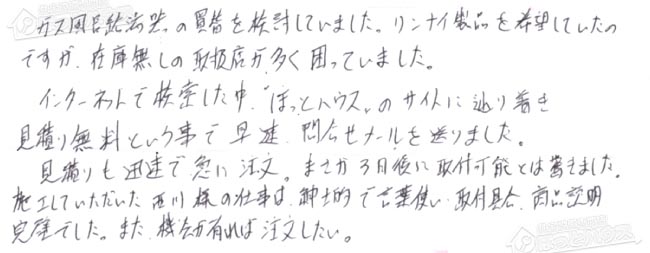 ガス風呂給湯器の買替を検討していました。リンナイ製品を希望していたの
ですが、在庫無しの取扱店が多く困っていました。
インターネットで検索した中、"ほっとハウス"のサイトに辿り着き
見積り無料という事で早速、問合せメールを送りました。
見積りも迅速で急に注文。まさか3日後に取付可能とは驚きました。
施工していただいた西川様の仕事は、紳士的で言葉使い、取付具合、商品説明
完璧でした。また、機会が有れば注文したい。